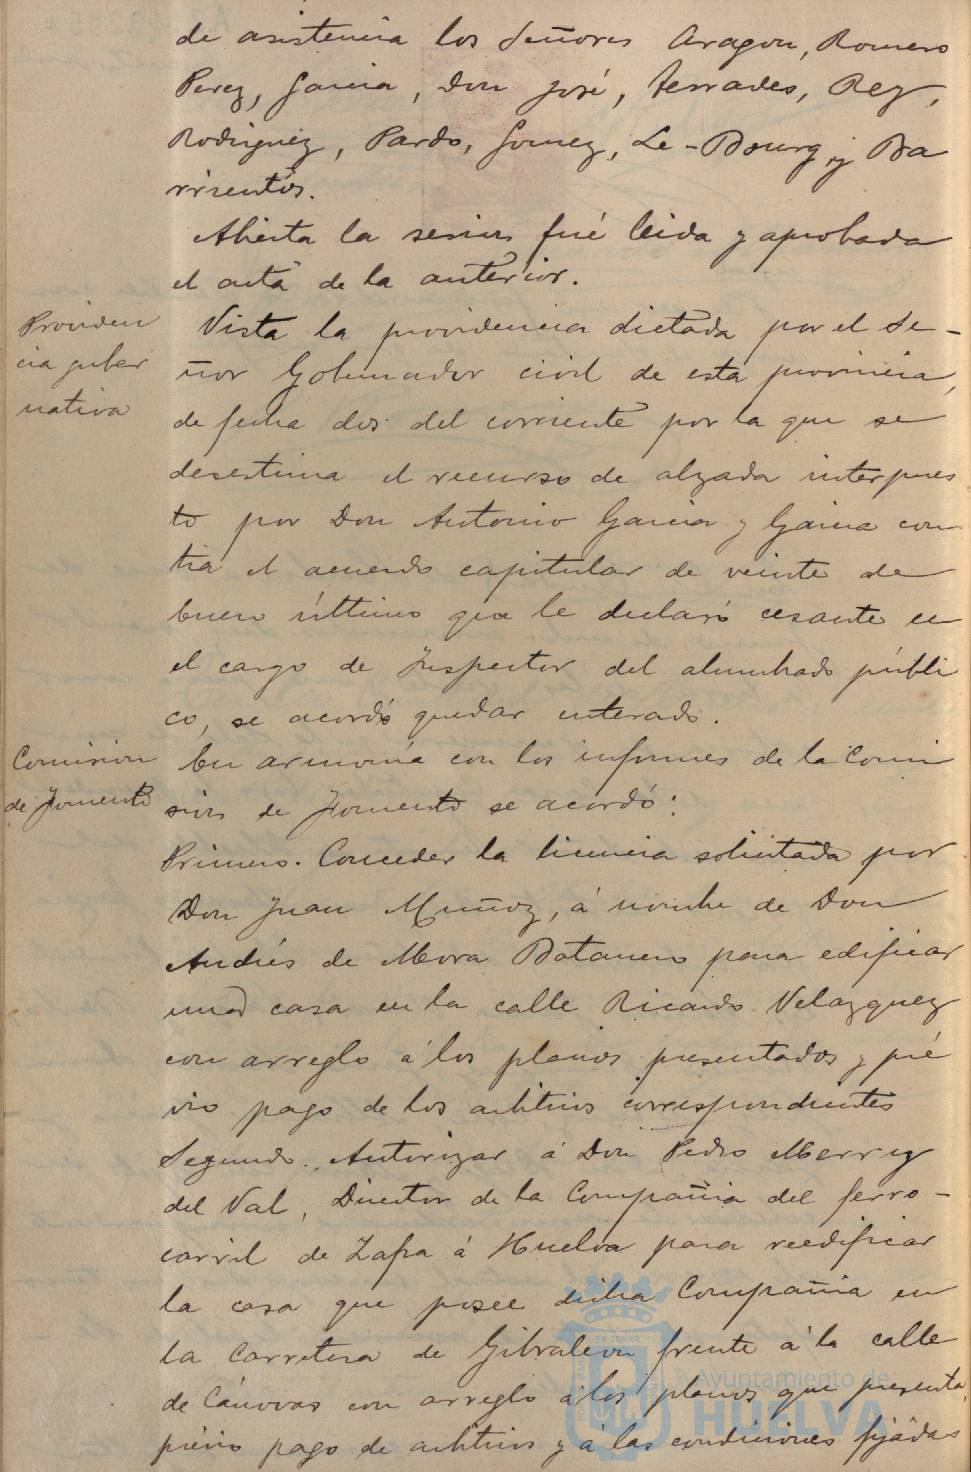 de asistencia los Señores Aragon, Romero
Perez, Garcia, Don José, Terrades, Rey,
Rodriguez, Pardo, Gomez, Le-Bourg y Ba
rrientos.
Abierta la sesion fué leida y aprobada
el acta de la anterior.
Providen
cia guber
nativa
Vista la providencia dictada por el Se-
ñor Gobernador civil de esta provincia,
de fecha dos del corriente por la que se
desestima el recurso de alzada interpues
to por Don Antonio Garcia y Garcia con
tra el acuerdo capitular de veinte de
Enero último que le declaró cesante en
el cargo de Inspector del alumbrado públi
co, se acordó quedar enterado.
Comision
de Fomento
En armonía con los informes de la Comi
sion de Fomento se acordó:
Primero. Conceder la licencia solicitada por
Don Juan Muñoz, á nombre de Don
Andrés de Mora Batanero para edificar
una casa en la calle Ricardo Velazquez
con arreglo á los planos presentados y pré
vio pago de los arbitrios correspondientes
Segundo. Autorizar á Don Pedro Merry
del Val, Director de la Compañia del ferro-
carril de Zafra á Huelva para reedificar
la casa que posee dicha Compañia en
la Carretera de Gibraleon frente á la calle
de Cánovas con arreglo á los planos que presenta,
prévio pago de arbitrios y á las condiciones fijadas
Ayuntamiento de
HUELVA